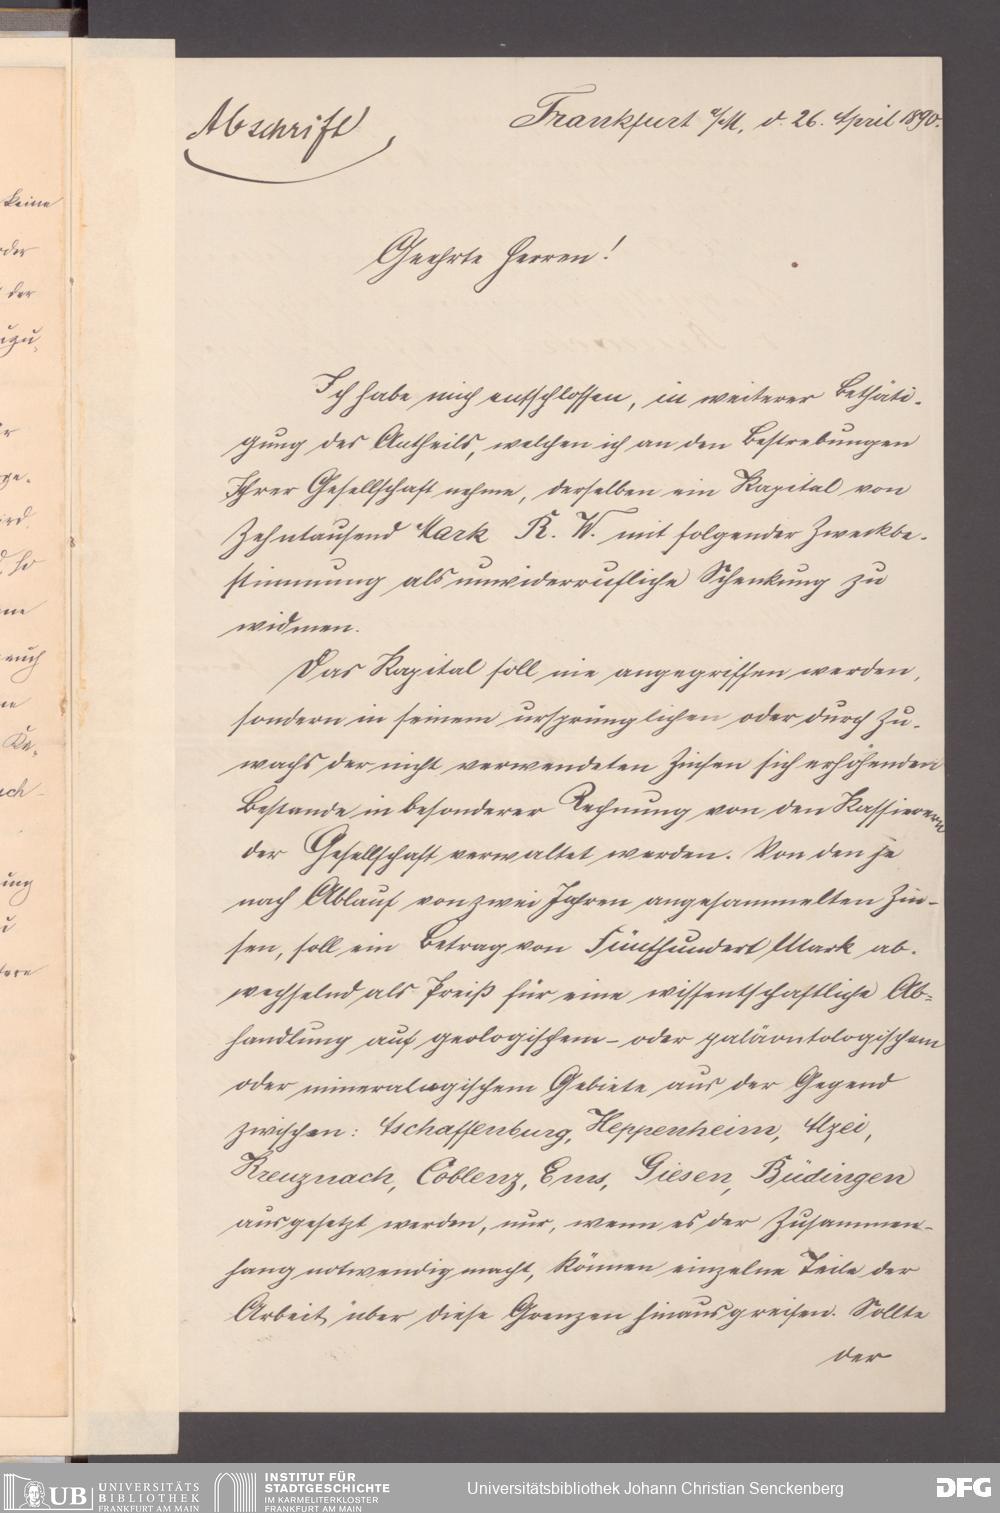 Abschrift
Frankfurt a/M, d. 26. April 1890.
Geehrte Herren!
Ich habe mich entschlossen, in weiterer Bethäti-
gung des Antheils, welchen ich an den Bestrebungen
Ihrer Gesellschaft nehme, derselben ein Kapital von
Zehntausend Mark R. W. mit folgender Zweckbe-
stimmung als unwiderrufliche Schenkung zu
widmen.
Das Kapital soll nie angegriffen werden,
sondern in seinem ursprünglichen oder durch Zu-
wachs der nicht verwendeten Zinsen sich erhöhenden
Bestande in besonderer Rechnung von den Kassierern
der Gesellschaft verwaltet werden. Von den je
nach Ablauf von zwei Jahren angesammelten Zin-
sen, soll ein Betrag von Fünfhundert Mark ab-
wechselnd als Preiß für eine wissentschaftliche Ab-
handlung auf geologischem- oder paläontologischem
oder mineralogischem Gebiete aus der Gegend
zwischen: Aschaffenburg, Heppenheim, Alzei,
Kreuznach, Coblenz, Ems, Giesen, Büdingen
ausgesetzt werden, nur, wenn es der Zusammen-
hang notwendig macht, können einzelne Teile der
Arbeit über diese Grenzen hinausgreifen. Sollte
der
keine
oder
der
ird
so
auch
ung
UB UNIVERSITÄTS
BIBLIOTHEK
FRANKFURT AM MAIN
INSTITUT FÜR
STADTGESCHICHTE
IM KARMELITERKLOSTER
FRANKFURT AM MAIN
Universitätsbibliothek Johann Christian Senckenberg
DFG